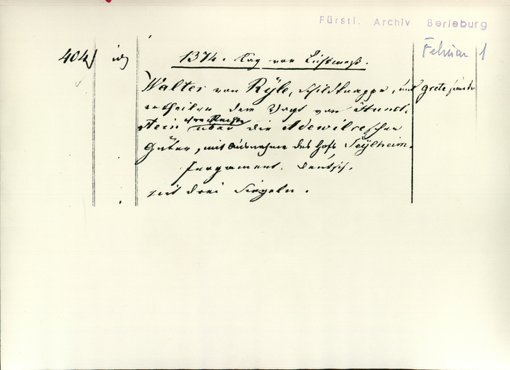 Fürstl. Archiv Berleburg
Februar 1
404
1374. Tag vor Lichtmeß.
Walter von Ryle, Schildknappe, und grete
ertheilen dem Vogt von Hunol-
stein über die Adewilre'schen
Güter, mit Ausnahme des Hofs Seylheim.
Pergament. Deutsch.
mit drei Siegeln.